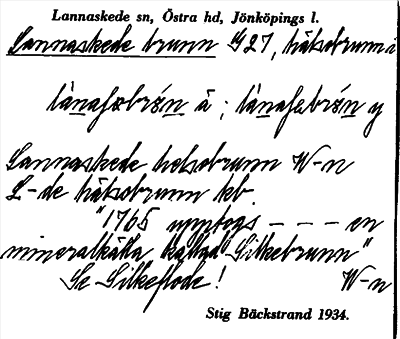 Lannaskede sn, Östra hd, Jönköpings l.
Lannaskede brunn G27, hälsobrunn i
länafsebrön ä ; länafsebrön y
Lannaskede helsobrunn W-n
L-de hälsobrunn kb.
"1765 upptogs - - - en
mineralkälla, kallad "Silkebrunn"
Se Silkeflode ! W-n
Stig Bäckstrand 1934.